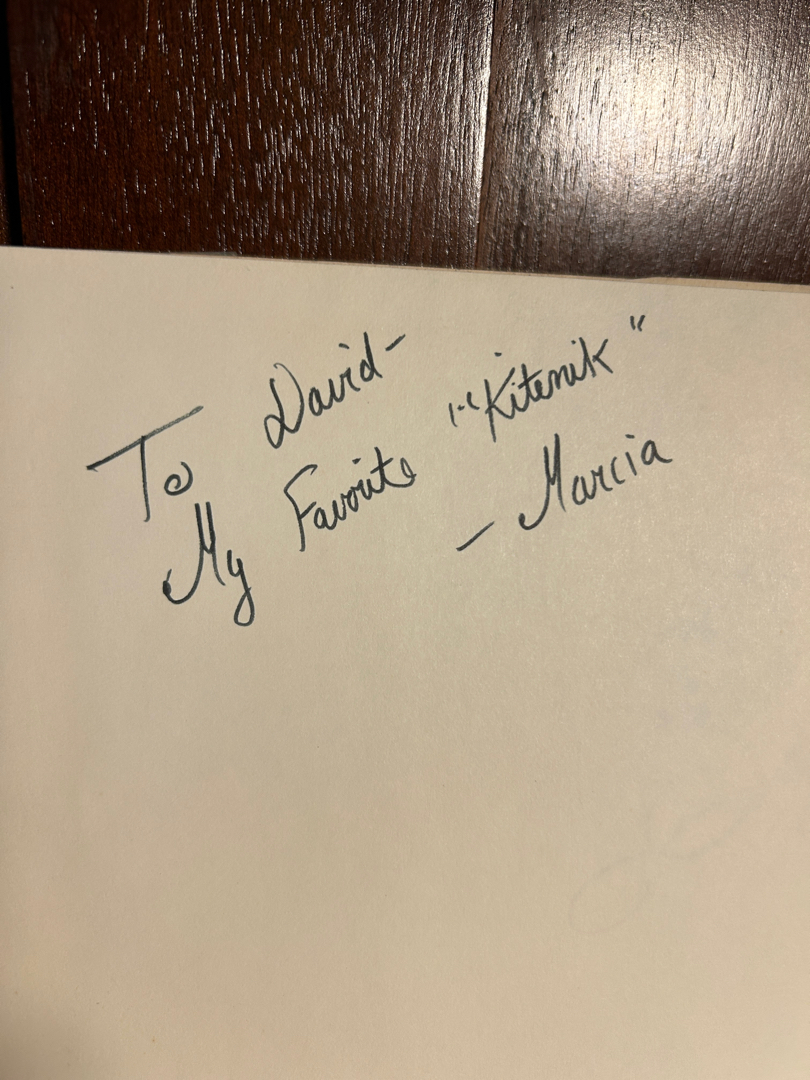 To David-
My Favorite "Kitenik"
- Marcia